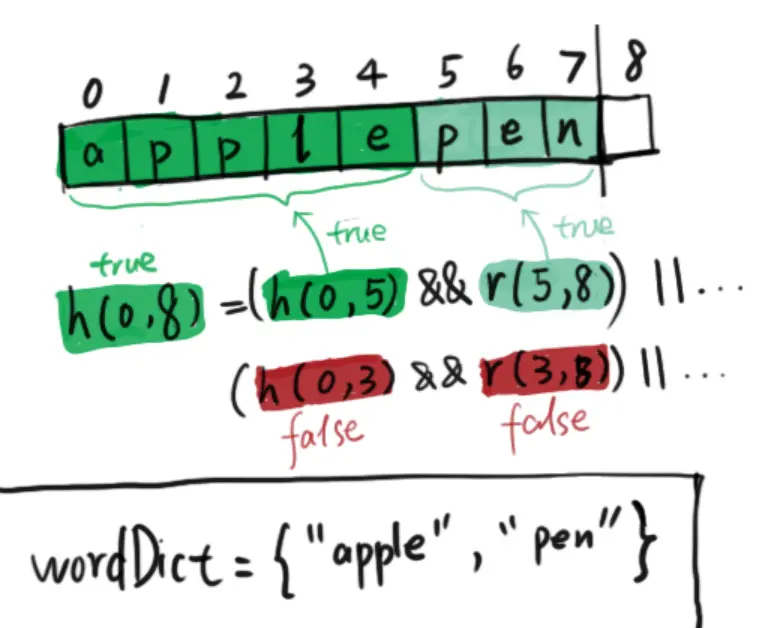 0 1 2 3 4 5 6 7 8
a p p l e p e n
true true
true
h(0,8) =(h(0,5) && r(5,8)) || ...
(h(0,3) && r(3,8)) || ...
false false
wordDict = {"apple", "pen"}